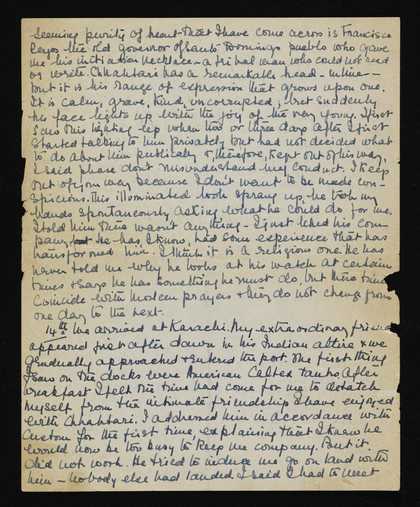 seeming purity of heart that I have come across is Francisco
Reyes the old governor of Santo Domingo pueblo who gave
me his initiation necklace - a tribal man who could not read
or write. Chhahtari has a remarkable head - in line -
but it is his range of expression that grows upon one.
It is calm, grave, kind, uncorrupted, & yet suddenly
the face lights up with the joy of the very young. I first
saw this lighting-up when two or three days after I first
started talking to him privately but had not decided what
to do about him publically &, therefore, kept out of his way.
I said please don't misunderstand my conduct. I keep
out of your way because I don't want to be made con-
spicious. This illuminated look sprang up, he took my
hands spontaneously asking what he could do for me.
I told him there wasn't anything - I just liked his com-
pany, but he has, I know, had some experience that has
transformed him. I think it is a religious one. He has
never told me why he looks at his watch at certain
times & says he has something he must do, but these times
coincide with Moslem prayers & they do not change from
one day to the next.
14th We arrived at Karachi. My extraordinary friend
appeared just after dawn in his Indian attire & we
gradually approached & entered the port. The first thing
I saw on the docks were American Caltex tanks. After
breakfast I felt the time had come for me to detatch
myself from the intimate friendship I have enjoyed
with Chhahtari. I addressed him in accordance with
custom for the first time, explaining that I knew he
would now be too busy to keep me company. But it
did not work. He tried to induce me go on land with
him - nobody else had landed. I said I had to meet